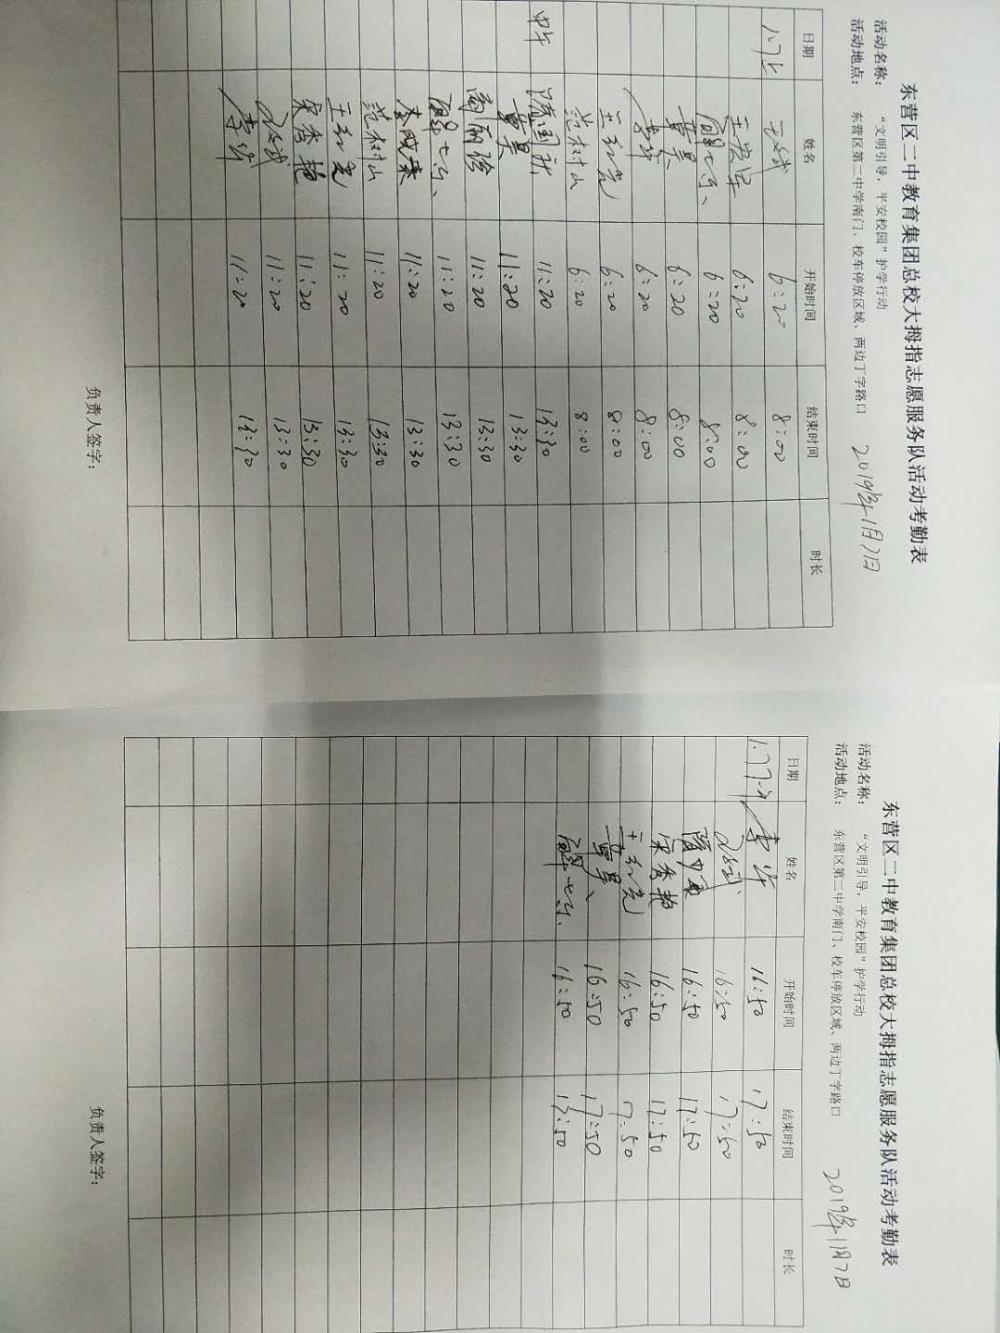 东营区二中教育集团总校大拇指志愿服务队活动考勤表
活动名称： “文明引导，平安校园”护学行动
活动地点： 东营区第二中学南门、校车停放区域、两边丁字路口 2019年1月7日
日期 姓名 开始时间 结束时间 时长
6:20 8:00
6:20 8:00
6:20 8:00
黄昊 6:20 8:00
李华 6:20 8:00
王红亮 6:20 8:00
范树山 6:20 8:00
中午 11:20 13:30
黄昊 11:20 13:30
11:20 13:30
11:20 13:30
李成荣 11:20 13:30
范树山 11:20 13:30
王红亮 11:20 13:30
宋秀艳 11:20 13:30
11:20 13:30
李华 11:20 13:30
负责人签字：
东营区二中教育集团总校大拇指志愿服务队活动考勤表
活动名称： “文明引导，平安校园”护学行动
活动地点： 东营区第二中学南门、校车停放区域、两边丁字路口 2019年1月7日
日期 姓名 开始时间 结束时间 时长
李华 16:50 17:50
16:50 17:50
16:50 17:50
宋秀艳 16:50 17:50
王红亮 16:50 17:50
黄昊 16:50 17:50
16:50 17:50
负责人签字：